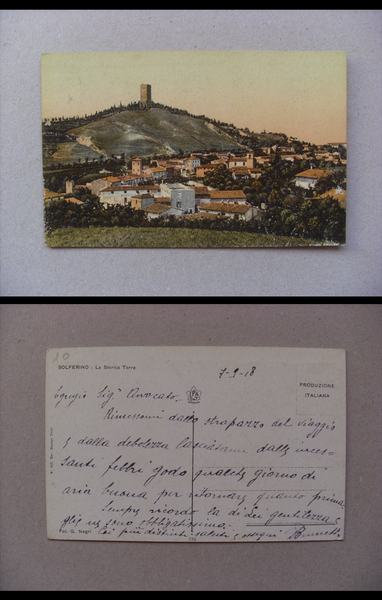 10
SOLFERINO : La Storica Torre
7-9-18
PRODUZIONE
ITALIANA
Egregio Sig.r Avvocato.
Rimessomi dallo strapazzo del viaggio
e dalla debolezza lasciatami dalle inces-
santi febbri godo qualche giorno di
aria buona per ritornare quanto prima.
Sempre ricordo la di Lei gentilezza e
gliene sono obbligatissimo.
Coi più distinti saluti e ossequi
Fot. G. Negri